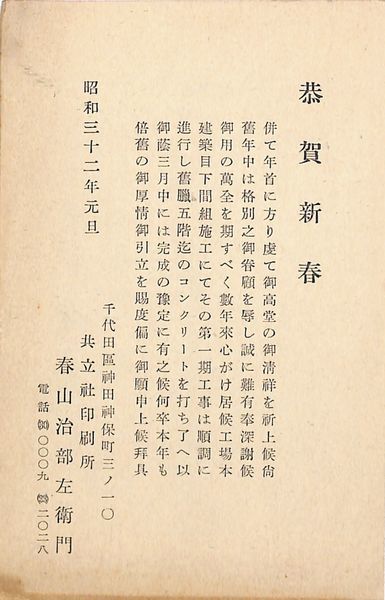 恭賀新春
併て年首に方り虔て御高堂の御淸祥を祈上候尙
舊年中は格別之御眷顧を辱し誠に難有奉深謝候
御用の萬全を期すべく數年來心がけ居候工場本
建築目下間組施工にてその第一期工事は順調に
進行し舊臘五階迄のコンクリートを打ち了へ以
御蔭三月中には完成の豫定に有之候何卒本年も
倍舊の御厚情御引立を賜度偏に御願申上候拜具
昭和三十二年元旦
千代田區神田神保町三ノ一〇
共立社印刷所
春山治部左衞門
電話 〇〇〇九 二〇二八